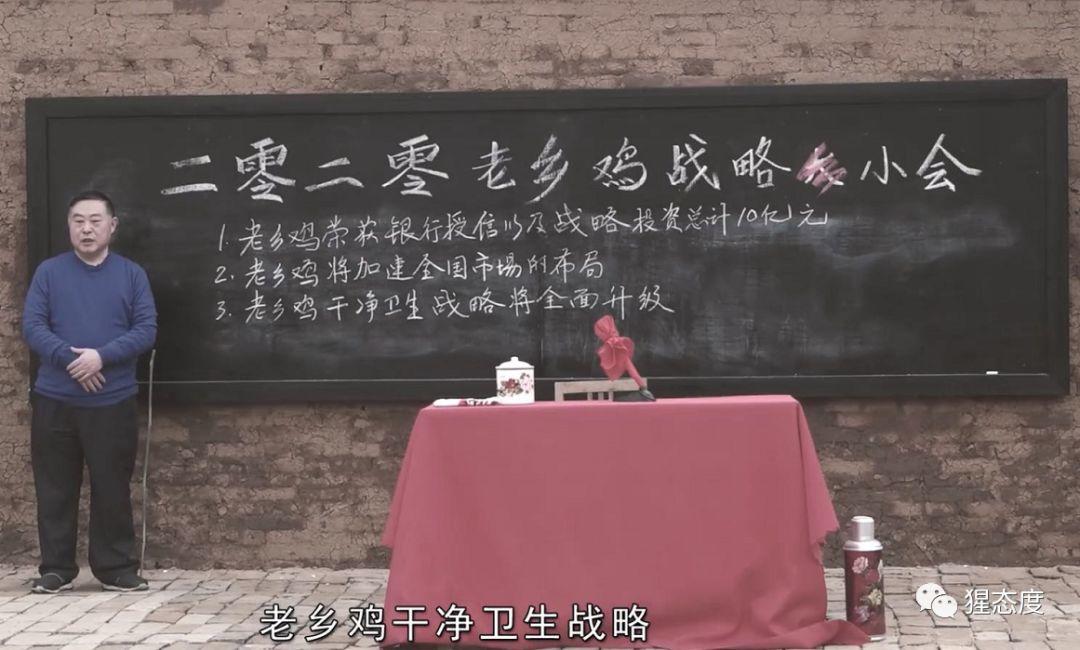 二零二零老乡鸡战略小会
1. 老乡鸡荣获银行授信以及战略投资总计10亿元
2. 老乡鸡将加速全国市场的布局
3. 老乡鸡干净卫生战略将全面升级
老乡鸡干净卫生战略
猩态度